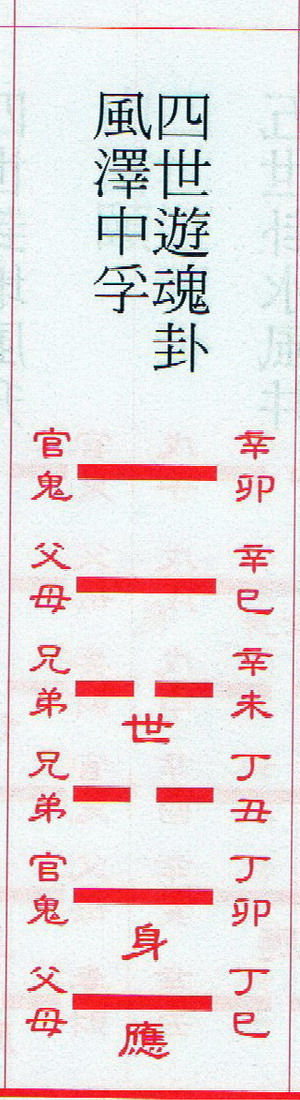 四世遊魂卦
風澤中孚
辛卯 官鬼
辛巳 父母
辛未 兄弟
世
丁丑 兄弟
丁卯 官鬼
身
丁巳 父母
應